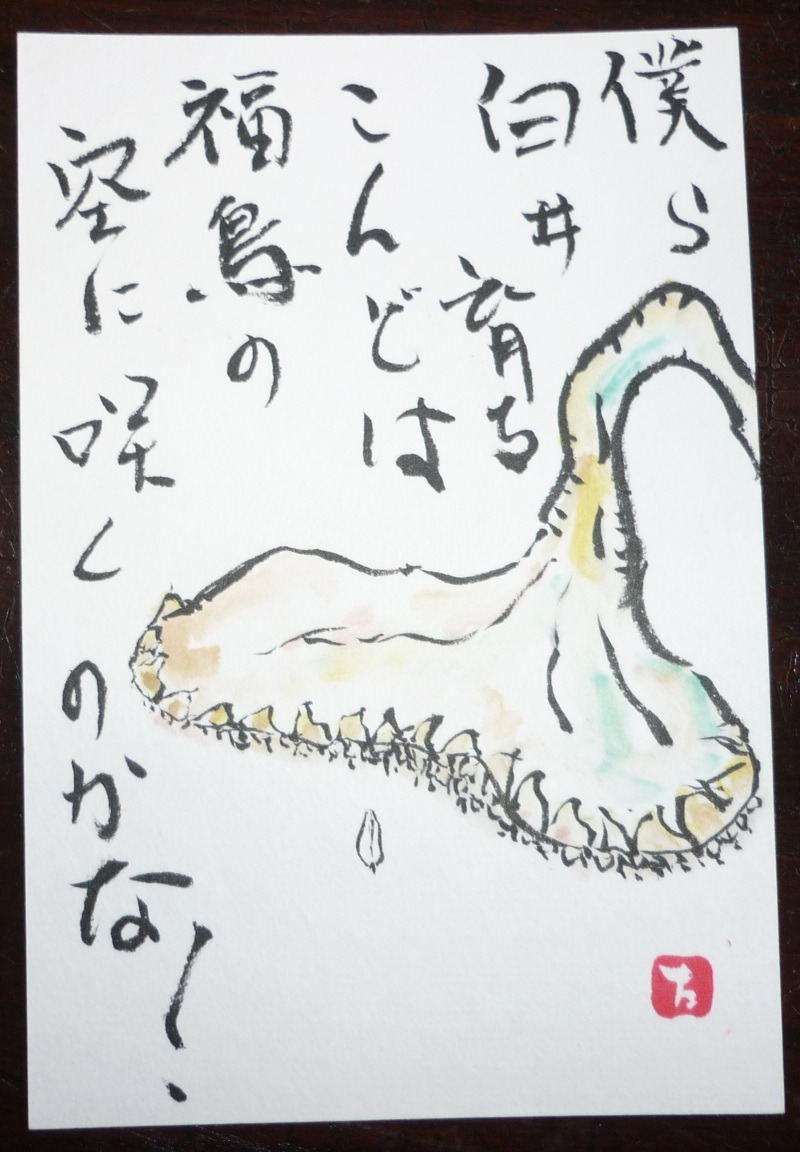 僕ら
臼井育ち
こんどは
福島の
空に咲くのかな!